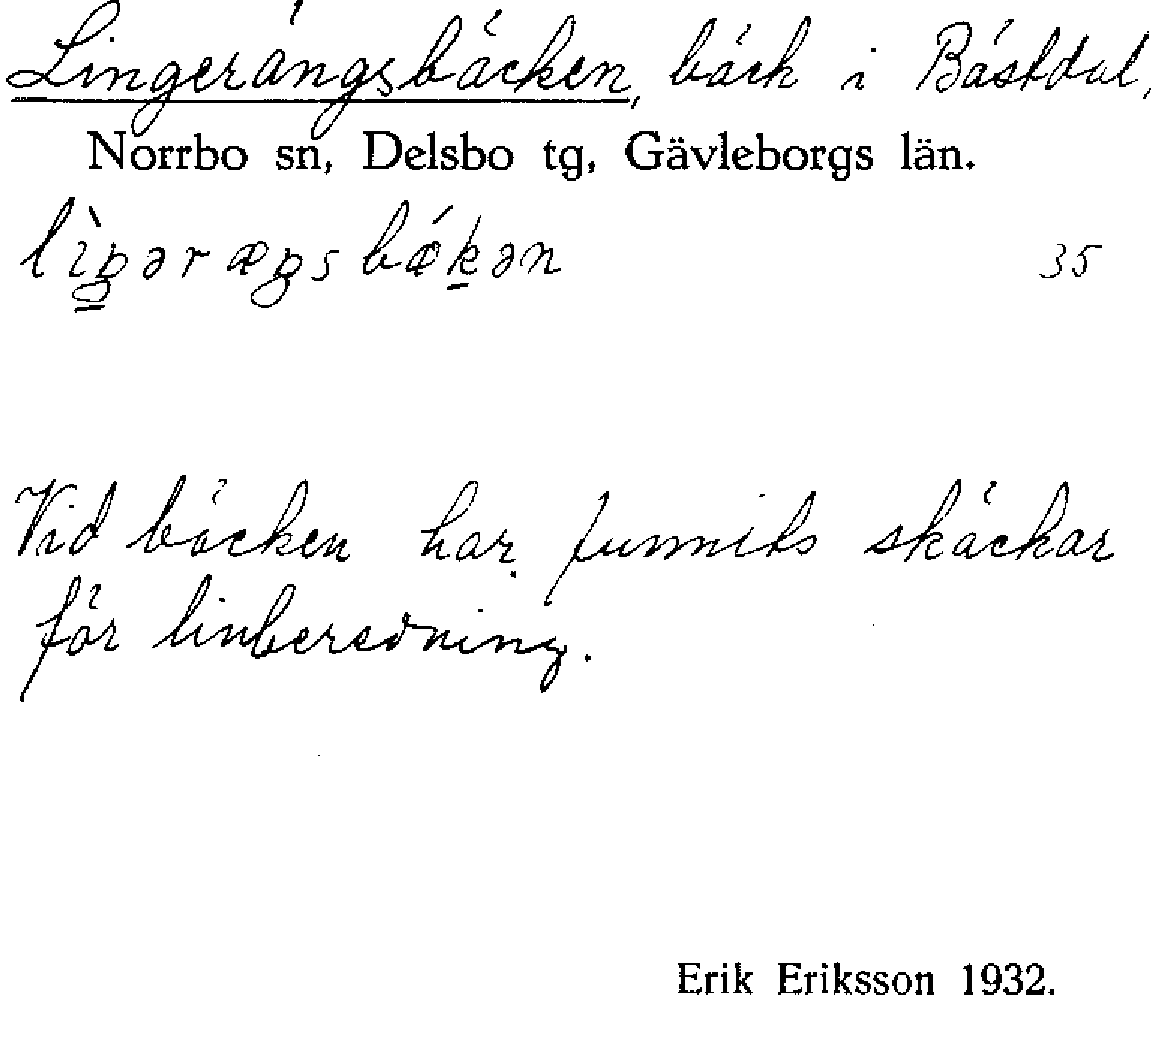 Lingerängsbäcken, bäck i Bästdal,
Norrbo sn, Delsbo tg, Gävleborgs län.
lìŋəræŋsbǽkən 35
Vid bäcken har funnits skäckar
för linberedning.
Erik Eriksson 1932.